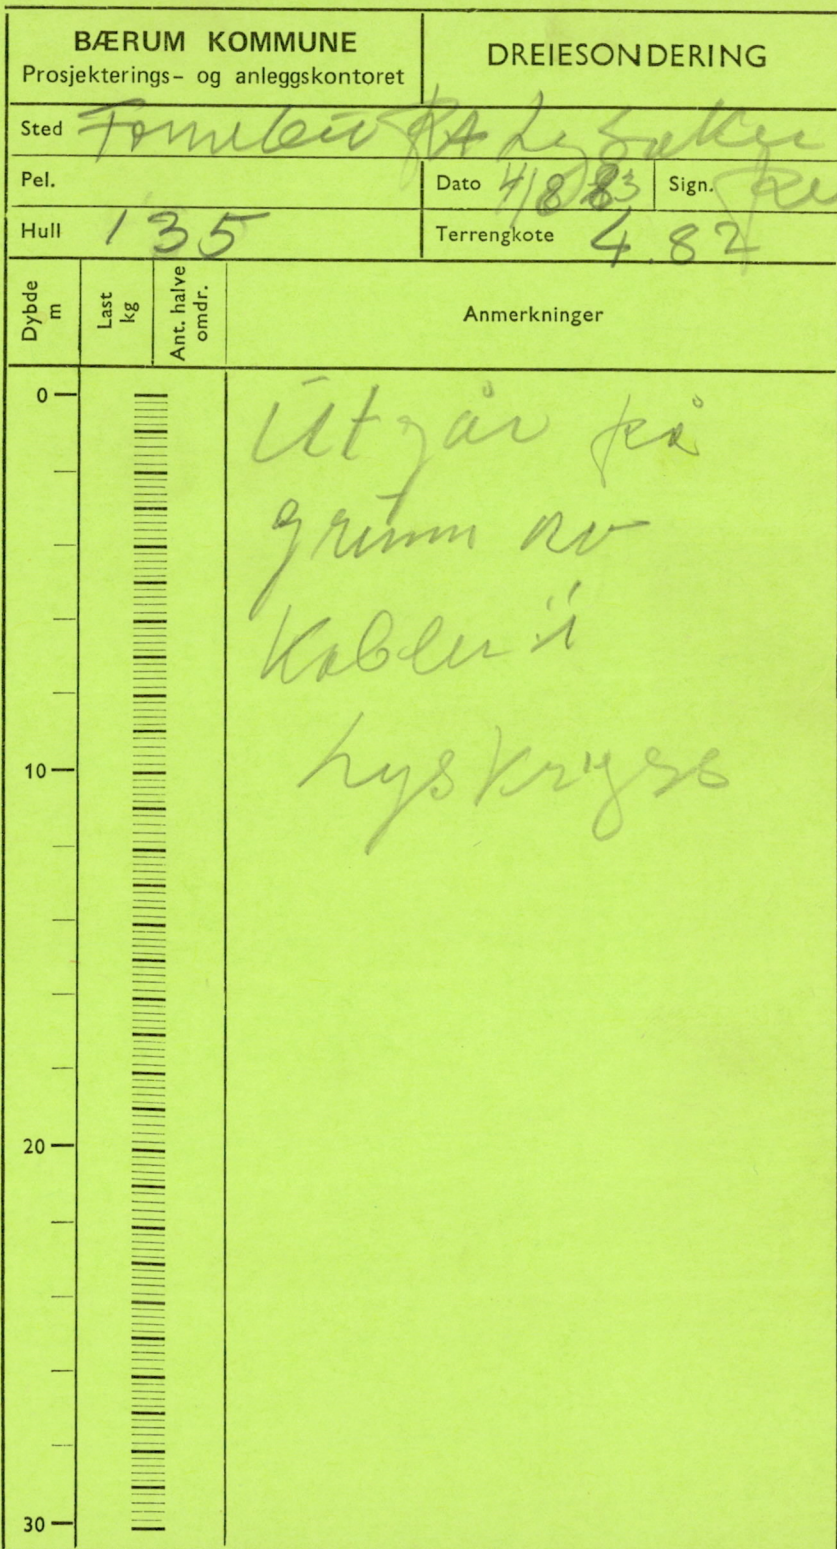 BÆRUM KOMMUNE
Prosjekterings- og anleggskontoret
DREIESONDERING
Sted Fornebu RA Lysaker
Pel.
Dato 4/8 83 Sign.
Hull 135
Terrengkote 4.82
Dybde m
Last kg
Ant. halve omdr.
Anmerkninger
0
Utgår på
grunn av
Kabler i
Lyskryss
10
20
30